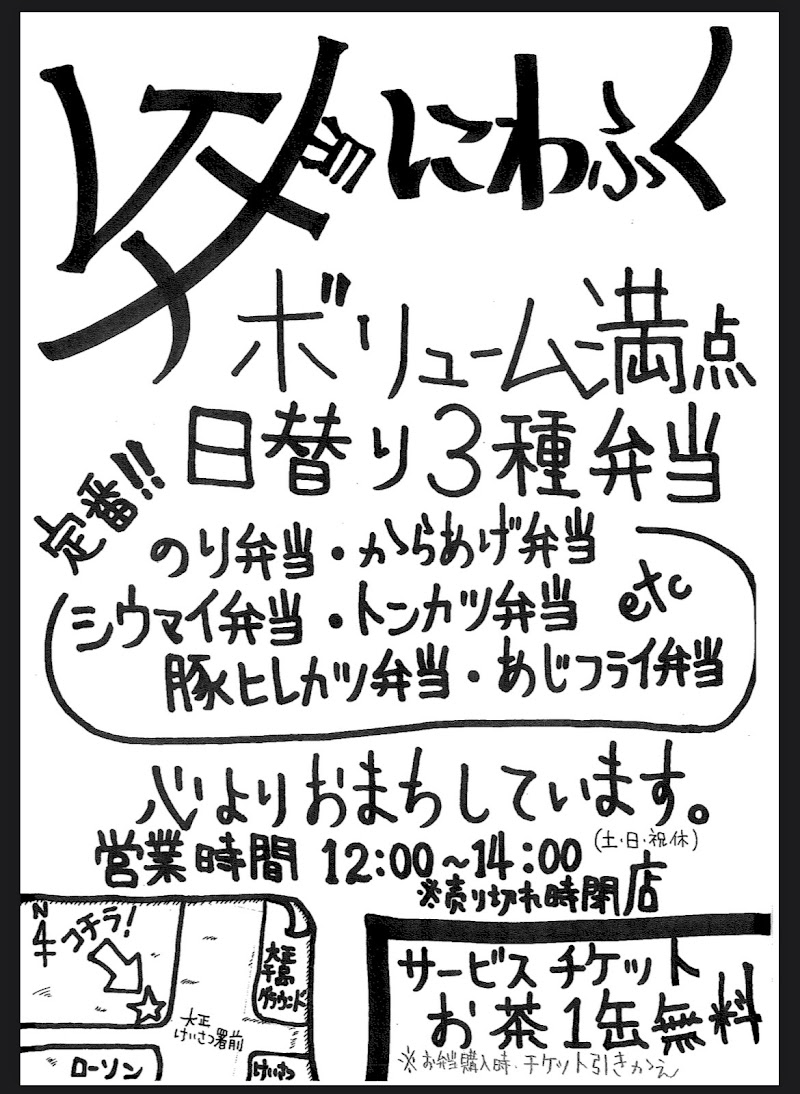 にわふく
ボリューム満点
日替り3種弁当
定番!!
のり弁当・からあげ弁当
シウマイ弁当・トンカツ弁当 etc
豚ヒレカツ弁当・あじフライ弁当
心よりおまちしています。
営業時間 12:00~14:00 (土・日・祝休)
※売り切れ時閉店
N
コチラ!
大正
千島
グラウンド
大正
けいさつ署前
ローソン
けいさつ
サービスチケット
お茶1缶無料
※お弁当購入時・チケット引きかえ